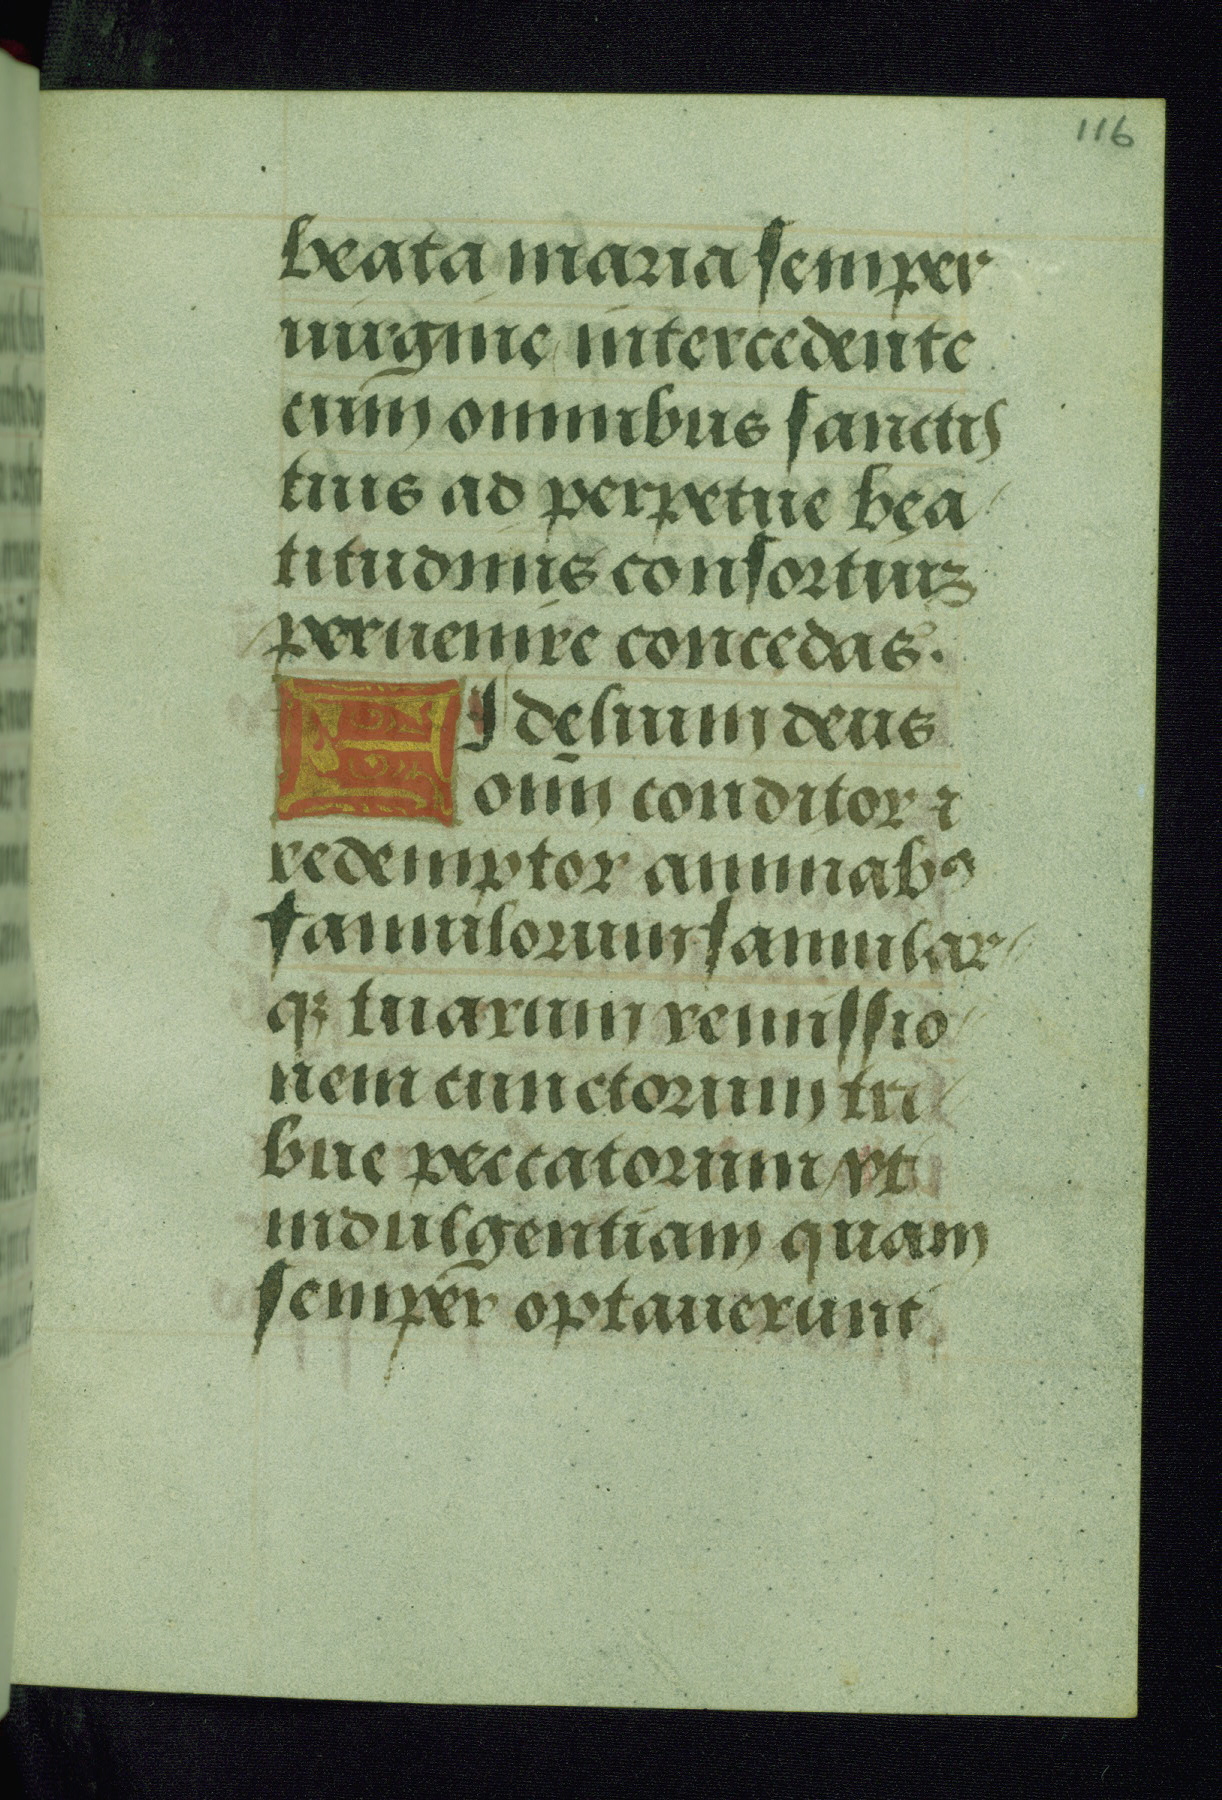 116
beata maria semper
uirgine intercedente
cum omnibus sanctis
tuis ad perpetue bea
titudinis consortiuꝫ
peruenire concedas.
FI delium deus
om̄ conditor ⁊
redemptor animabꝰ
famulorum famular
qꝫ tuarum remissio
nem cunctorum tri
bue peccatorum vt
indulgentiam quam
semper optauerunt